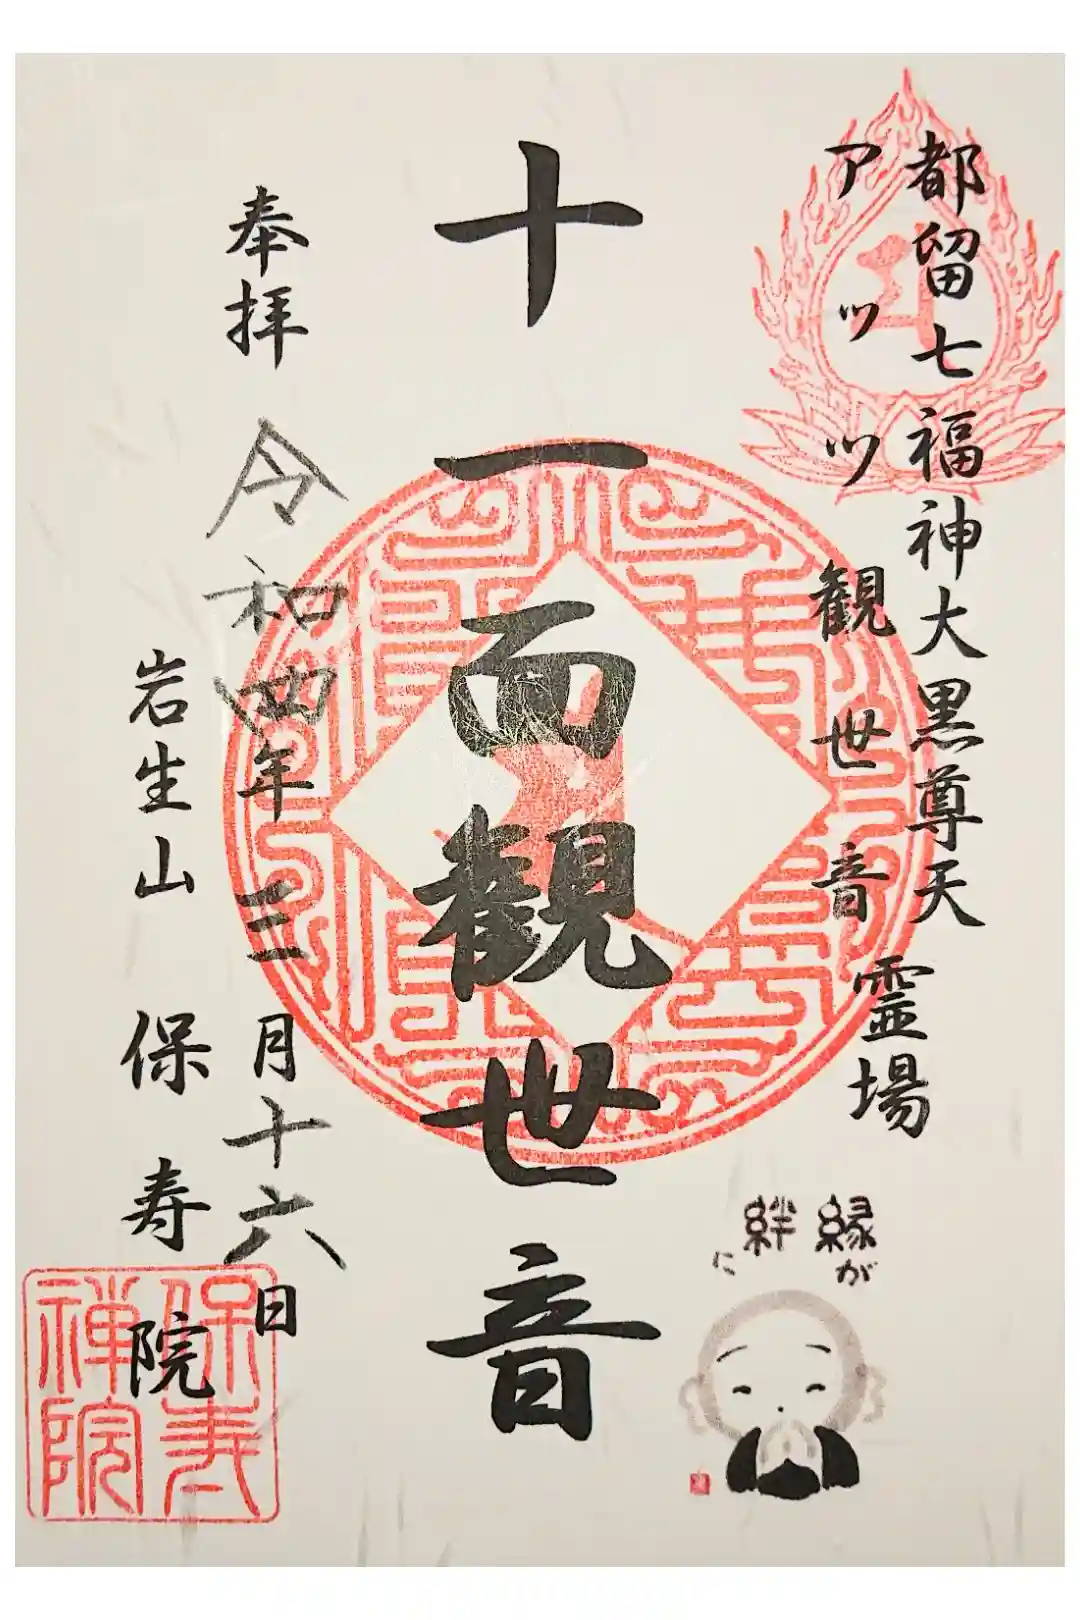 都留七福神大黒尊天
アッツ観世音
霊場
十一面觀世音
奉拝
令和四年三月十六日
岩生山 保寿院
縁が
絆に
保寿
禅院